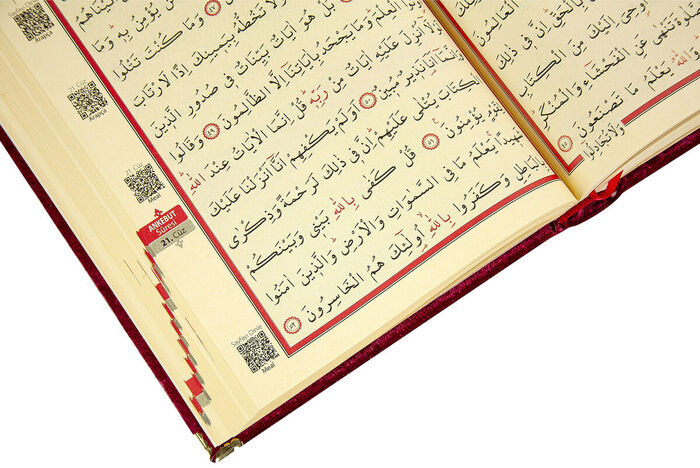 الْعَالَمِينَ
بِالْحَقِّ اِنَّ فِى ذٰلِكَ
اُوحِىَ اِلَيْكَ مِنَ الْكِتَابِ
تَنْهٰى عَنِ الْفَحْشَاءِ وَالْمُنْكَرِ
اللّٰهُ يَعْلَمُ مَا تَصْنَعُونَ ٤٥
وَلَا تُجَادِلُوا
مَنْ يُؤْمِنُ بِهِ وَمَا
٤٧ وَمَا كُنْتَ تَتْلُوا
وَلَا تَخُطُّهُ بِيَمِينِكَ اِذًا لَارْتَابَ
بَلْ هُوَ اٰيَاتٌ بَيِّنَاتٌ فِى صُدُورِ الَّذِينَ
الْعِلْمَ وَمَا يَجْحَدُ بِاٰيَاتِنَا اِلَّا الظَّالِمُونَ ٤٩ وَقَالُوا
اُنْزِلَ عَلَيْهِ اٰيَاتٌ مِنْ رَبِّهِ قُلْ اِنَّمَا الْاٰيَاتُ عِنْدَ اللّٰهِ
وَاِنَّمَا اَنَا نَذِيرٌ مُبِينٌ ٥٠ اَوَلَمْ يَكْفِهِمْ اَنَّا اَنْزَلْنَا عَلَيْكَ
الْكِتَابَ يُتْلٰى عَلَيْهِمْ اِنَّ فِى ذٰلِكَ لَرَحْمَةً وَذِكْرٰى
يُؤْمِنُونَ ٥١ قُلْ كَفٰى بِاللّٰهِ بَيْنِى وَبَيْنَكُمْ
شَهِيدًا يَعْلَمُ مَا فِى السَّمٰوَاتِ وَالْاَرْضِ وَالَّذِينَ اٰمَنُوا
بِالْبَاطِلِ وَكَفَرُوا بِاللّٰهِ اُولٰئِكَ هُمُ الْخَاسِرُونَ ٥٢
Arapça
Arapça
Meal
ANKEBUT
Sûresi
21. Cüz
Sayfayı Dinle
Meal